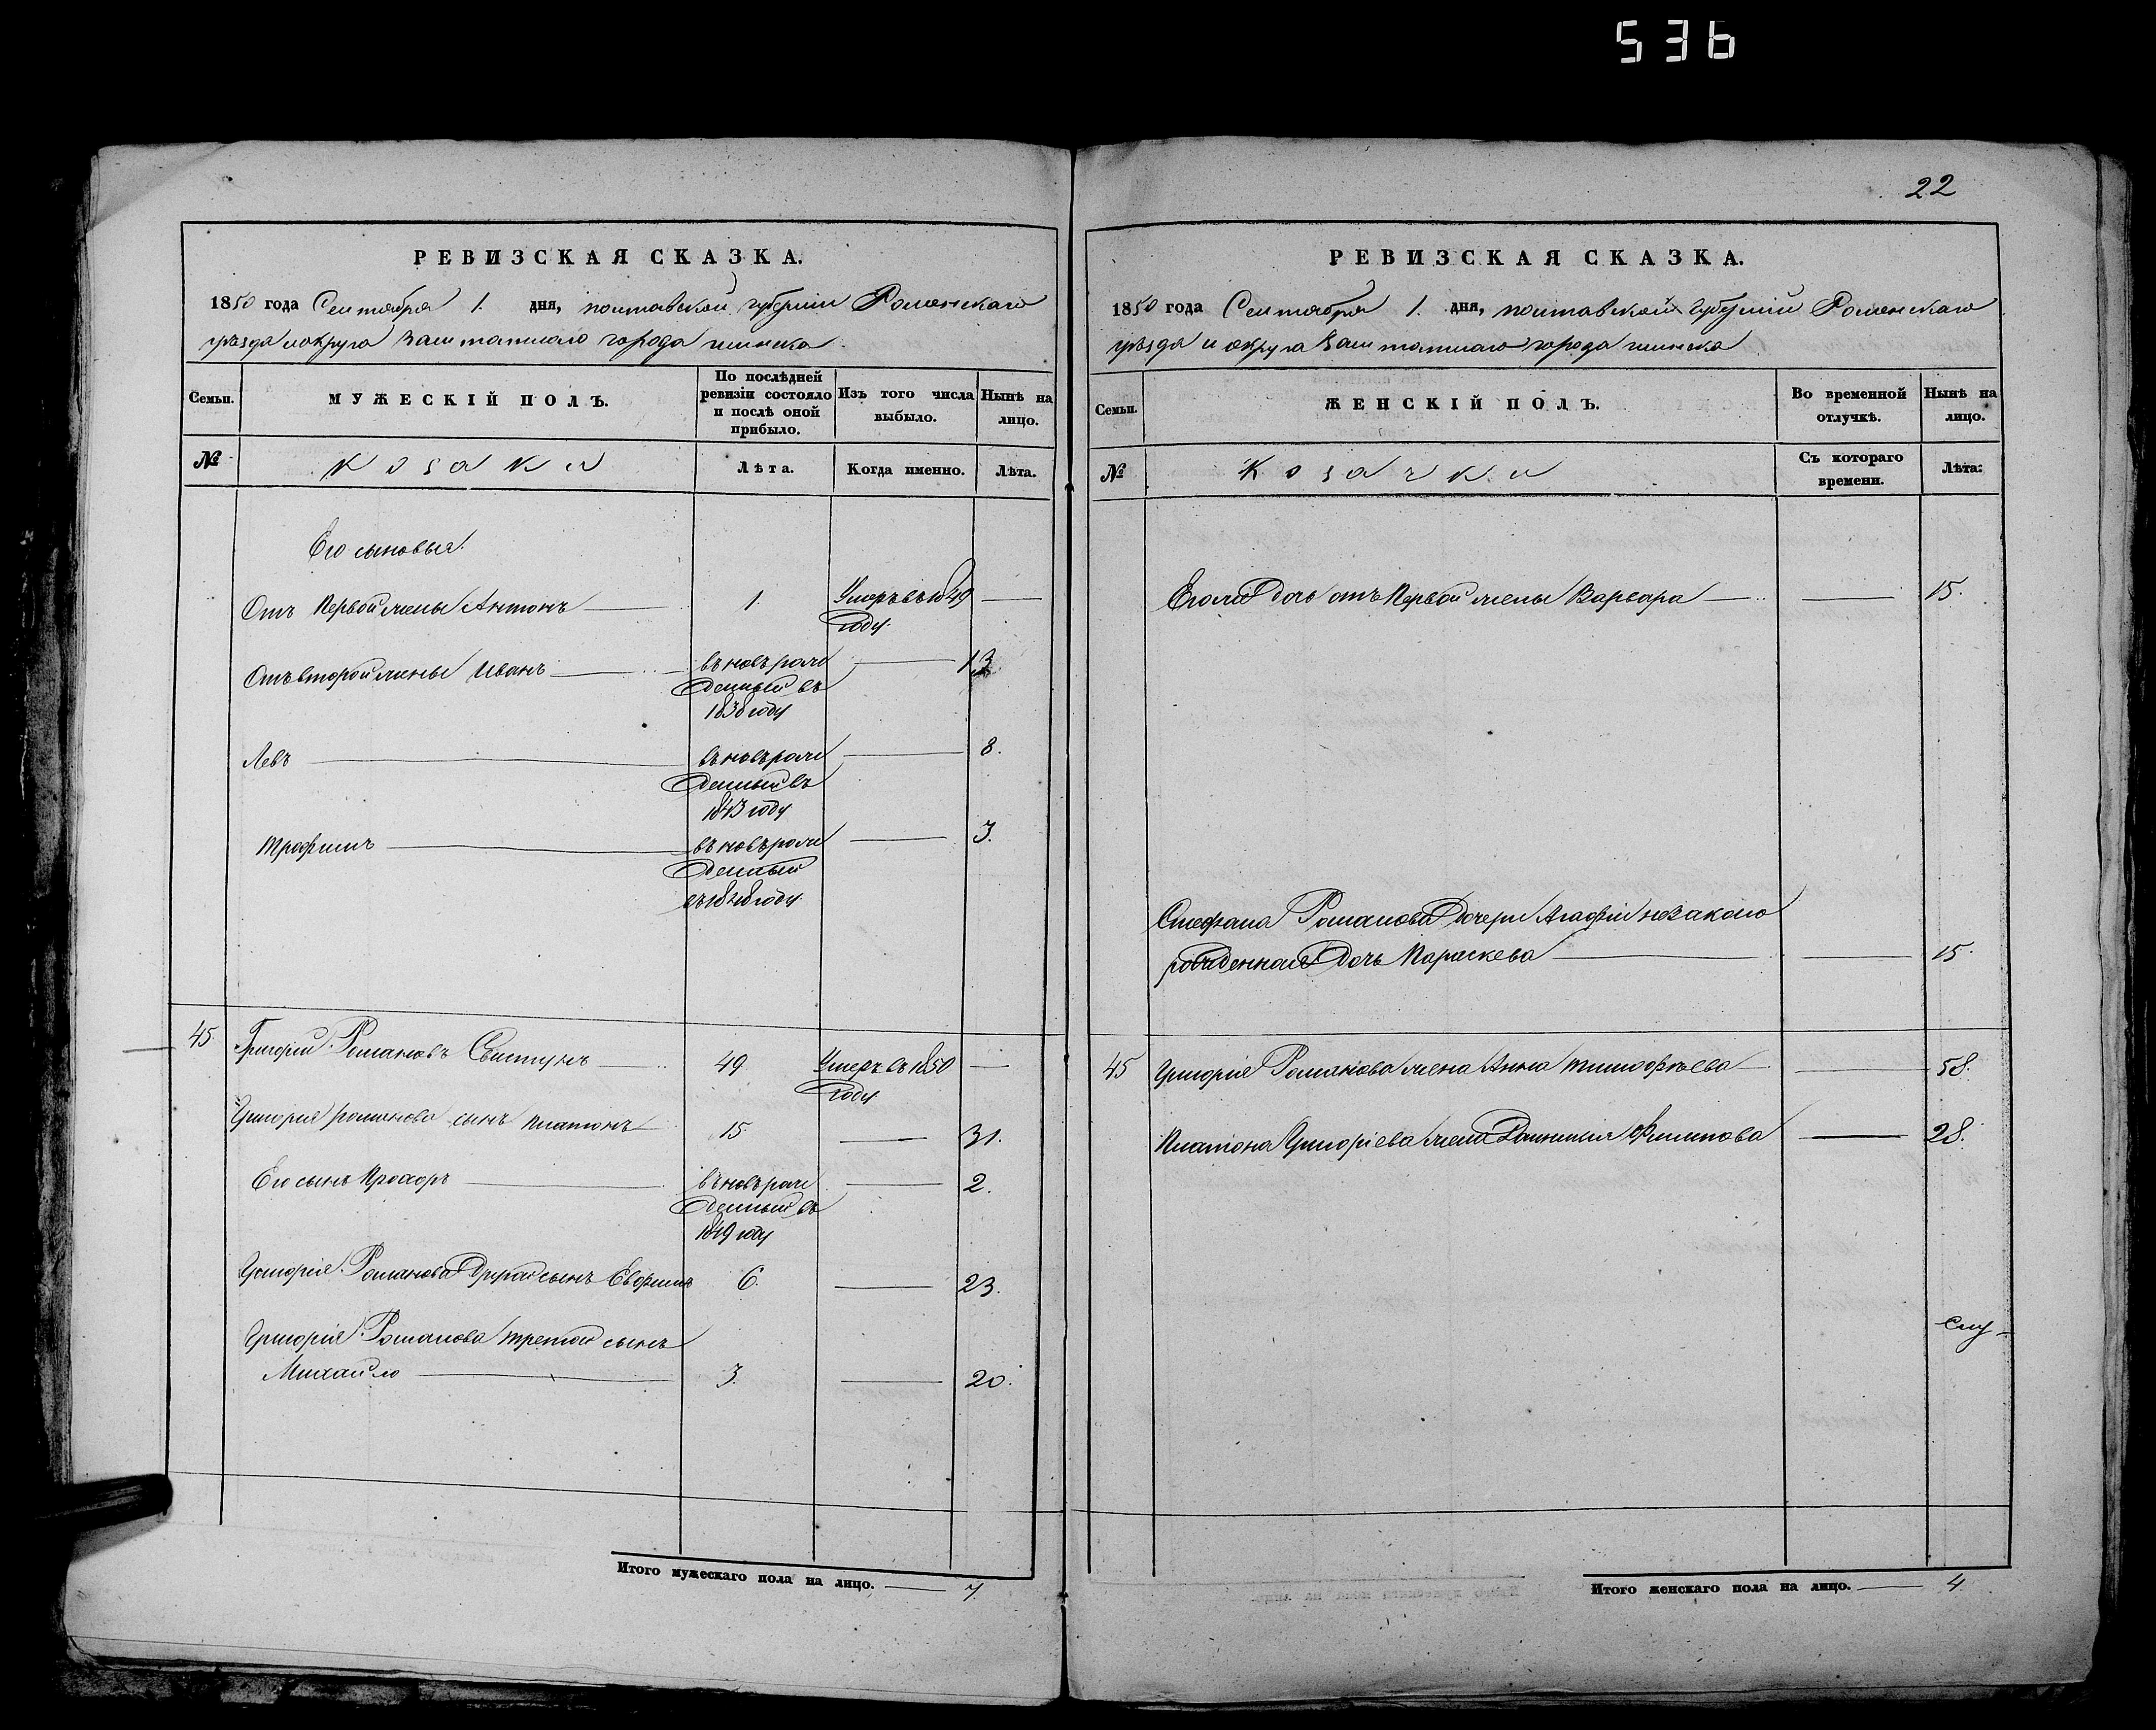 536
22
РЕВИЗСКАЯ СКАЗКА.
1850 года Сентября 1. дня, полтавской губерніи Роменскаго
уѣзда и округа Заштатнаго города глинска
Семьи.
МУЖЕСКІЙ ПОЛЪ.
По послѣдней ревизіи состояло и послѣ оной прибыло.
Изъ того числа выбыло.
Нынѣ на лицо.
№
Козаки
Лѣта.
Когда именно.
Лѣта.
Его сыновья.
Отъ Первой жены Антонъ 1. Умеръ въ 1849 году.
Отъ второй жены Иванъ въновърож денный въ 1838 году 13
Левъ въновърож денный въ 1843 году 8.
Трофимъ въновърож денный въ 1848 году 3.
45 Григорій Романовъ Свистунъ 49 Умеръ въ 1850 году
Григорія романова сынъ Платонъ 15. 31.
Его сынъ Прохоръ въновърож денный въ 1849 году 2.
Григорія Романова Другой сынъ Евфимъ 6. 23.
Григорія Романова третій сынъ
Михайло 3. 20.
Итого мужескаго пола на лицо. 7.
РЕВИЗСКАЯ СКАЗКА.
1850 года Сентября 1. дня, полтавской губерніи Роменскаго
уѣзда и округа Заштатнаго города глинска
Семьи.
ЖЕНСКІЙ ПОЛЪ.
Во временной отлучкѣ.
Нынѣ на лицо.
№
Козачки
Съ котораго времени.
Лѣта:
Дочь отъ Первой жены Варвара 15.
Стефана Романова Дочери Агафіи незаконо
рожденная Дочь Параскева 15.
45 Григорія Романова жена Анна тимофѣева 58.
Платона Григоріева жена Домникія Филипова 28.
Итого женскаго пола на лицо. 4